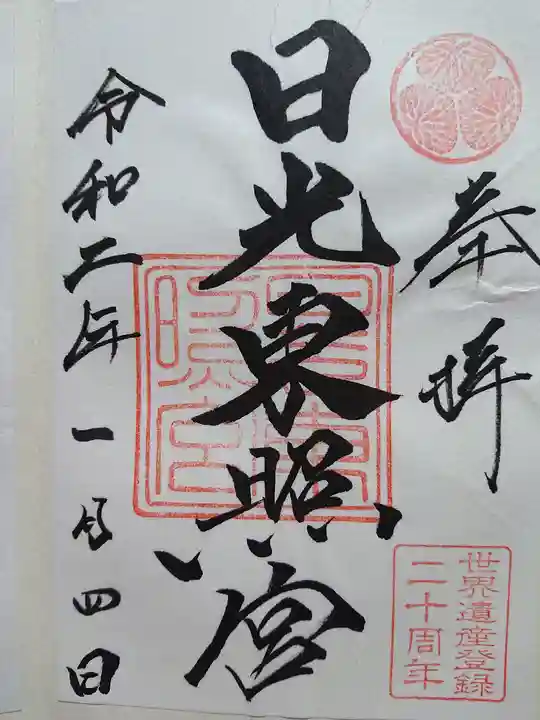 奉拝
日光東照宮
令和二年一月四日
世界遺産登録
二十周年